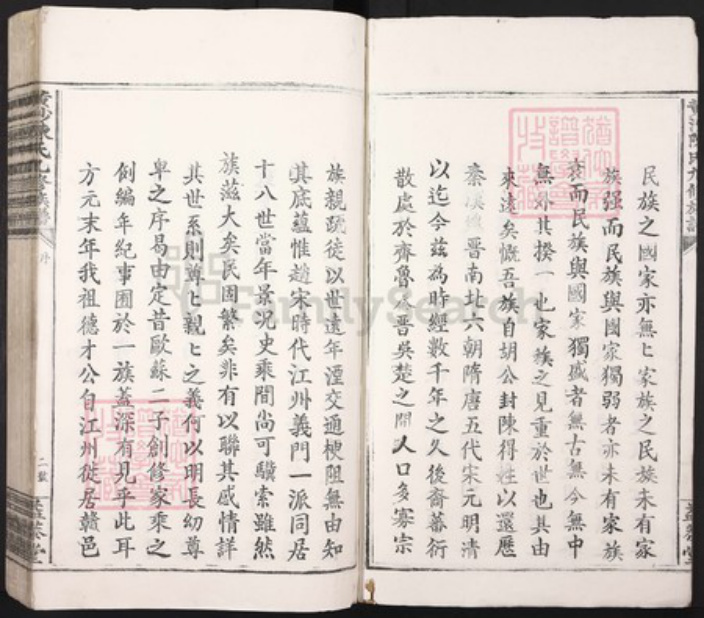 民族之國家亦無亡家族之民族未有家
族强而民族與國家獨弱者亦未有家族
衰而民族與國家獨盛者無古無今無中
無外其揆一也家族之見重於世也其由
來遠矣慨吾族自胡公封陳得姓以還歷
秦漢魏晋南北六朝隋唐五代宋元明清
以迄今兹為時經數千年之久後裔蕃衍
散處於齊魯秦晋吳楚之間人口多寡宗
族親疏徒以世遠年湮交通梗阻無由知
其底蘊惟趙宋時代江州義門一派同居
十八世當年景况史乘間尚可驥索雖然
族滋大矣民固繁矣非有以聯其感情詳
其世系則尊亡親亡之義何以明長幼尊
卑之序曷由定昔歐蘇二子創修家乘之
創編年紀事囿於一族蓋深有見乎此耳
方元末年我祖德才公自江州徙居贛邑
黄沙陳氏九修族譜
序
二
FamilySearch